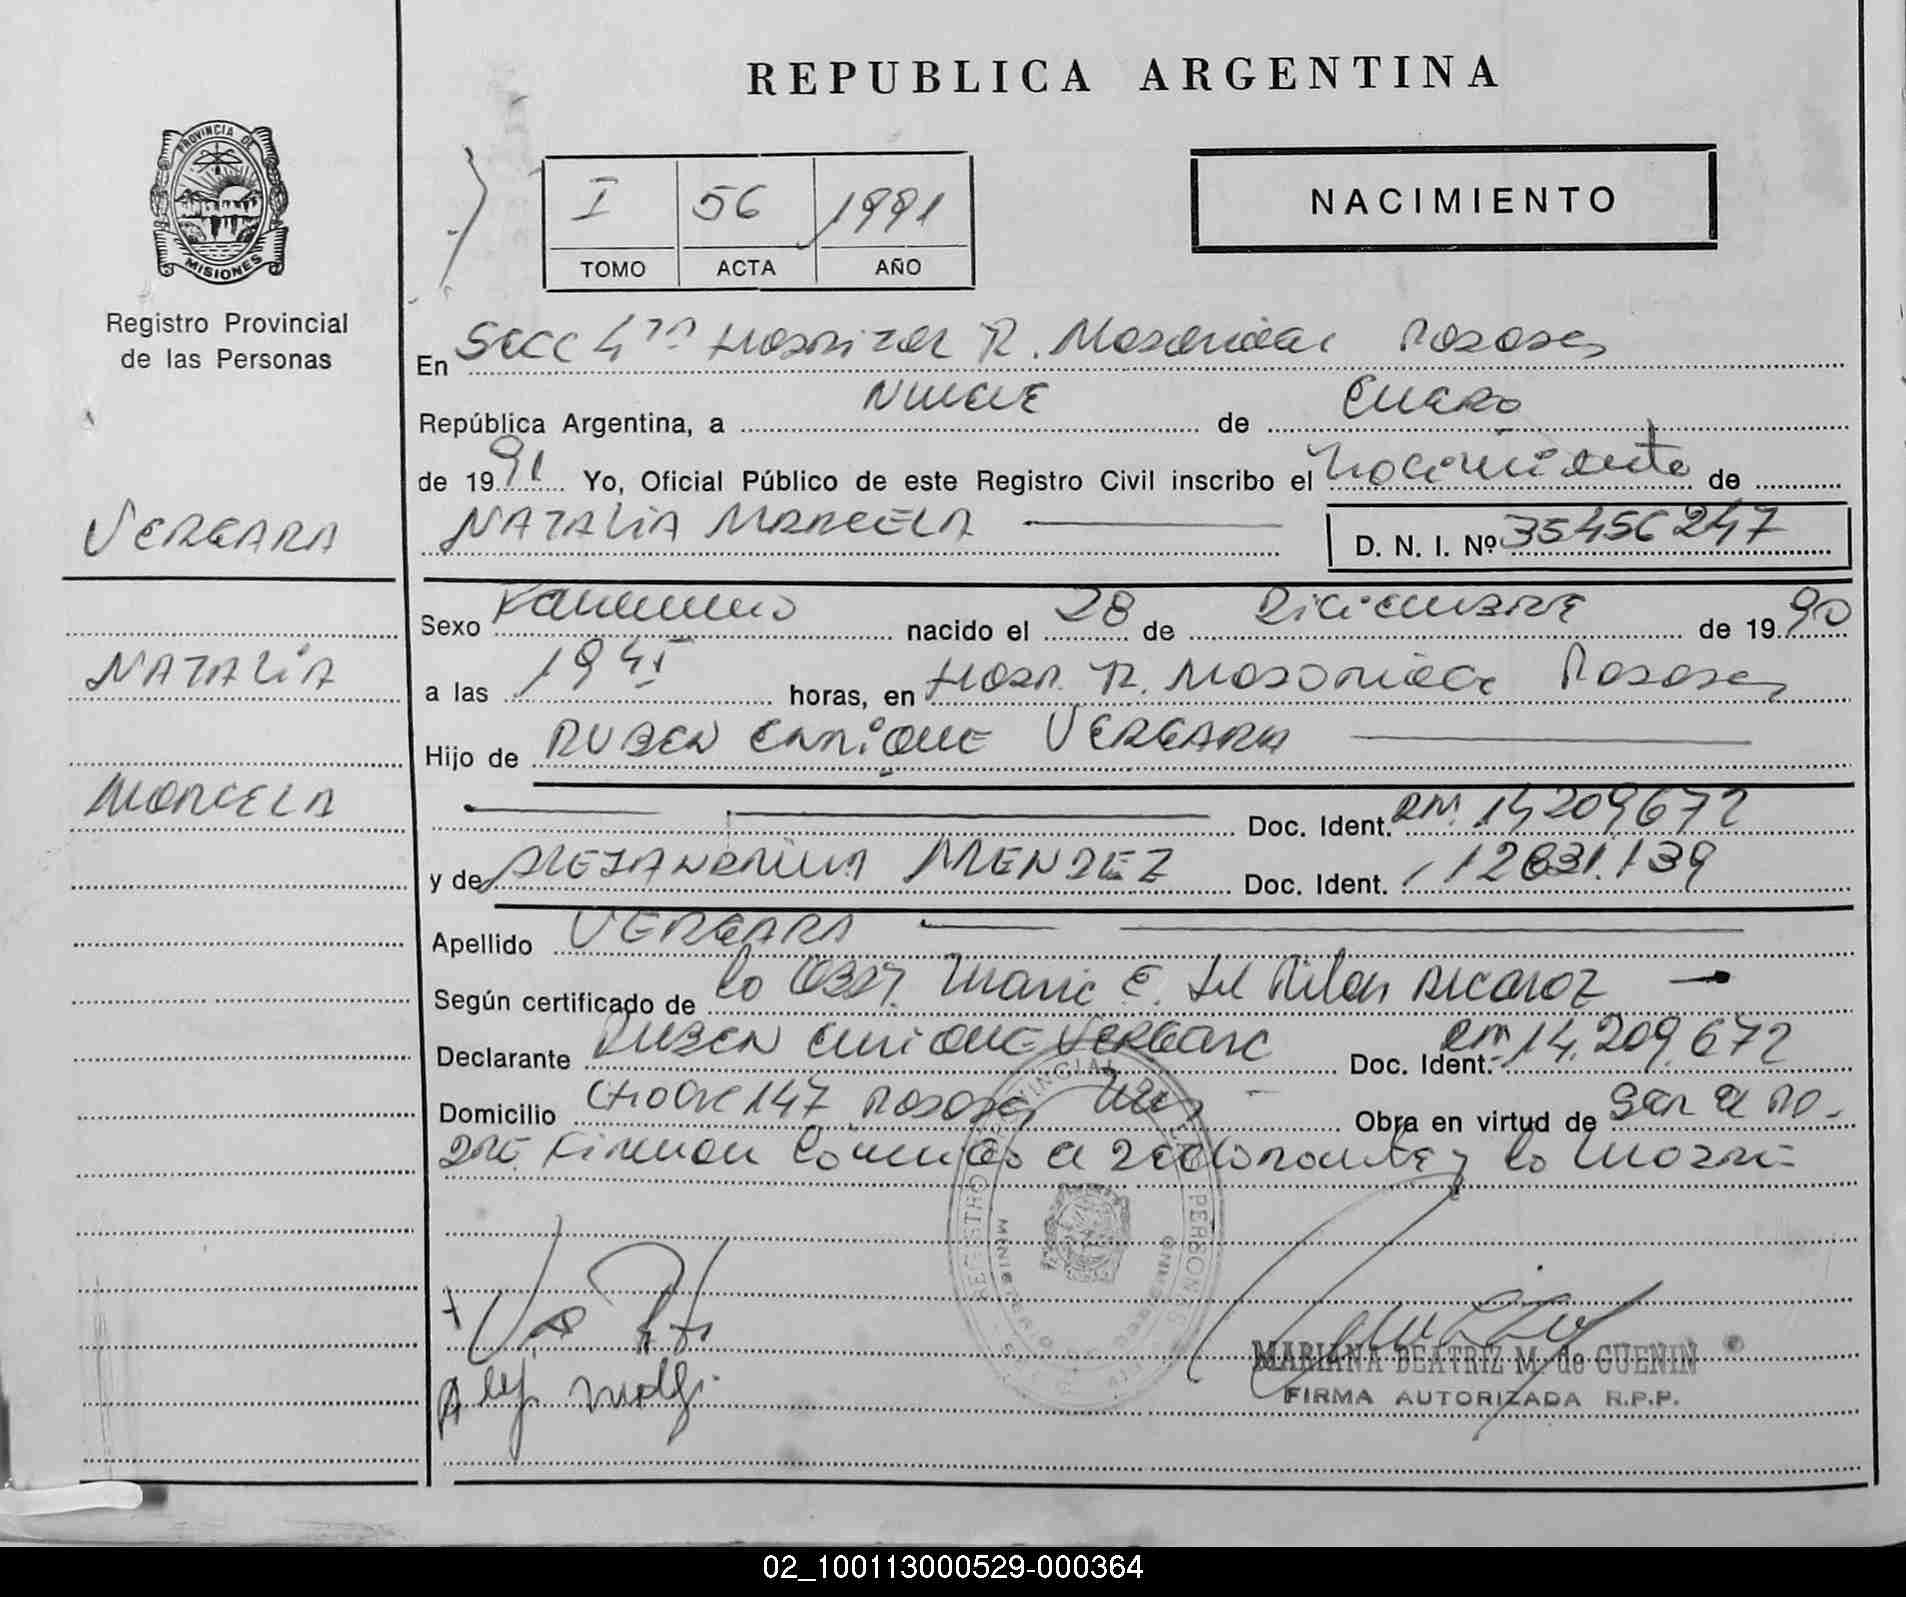 REPUBLICA ARGENTINA
PROVINCIA DE
MISIONES
Registro Provincial
de las Personas
I 56 1991
TOMO ACTA AÑO
NACIMIENTO
En Secc 4ta Hospital R. Madariaga Posadas
República Argentina, a NUEVE de ENERO
de 1991 Yo, Oficial Público de este Registro Civil inscribo el Nacimiento de
VERGARA
NATALIA MARCELA
D. N. I. Nº 35456247
Sexo Femenino nacido el 28 de Diciembre de 1990
NATALIA
a las 19 horas, en Hosp. R. Madariaga Posadas
Hijo de RUBEN ENRIQUE VERGARA
MARCELA
Doc. Ident. DNI. 14209672
y de ALEJANDRINA MENDEZ Doc. Ident. 12831.139
Apellido VERGARA
Según certificado de la Obst. Maria E. del Pilar Alcaraz
Declarante RUBEN ENRIQUE VERGARA Doc. Ident. DNI 14.209.672
Domicilio Chacra 147 Posadas Mnes Obra en virtud de ser el pa-
dre. Firman conmigo el declarante y la madre
REGISTRO PROVINCIAL DE LAS PERSONAS
MINISTERIO DE GOBIERNO
MARIANA BEATRIZ M. de GUENIN
FIRMA AUTORIZADA R.P.P.
02_100113000529-000364